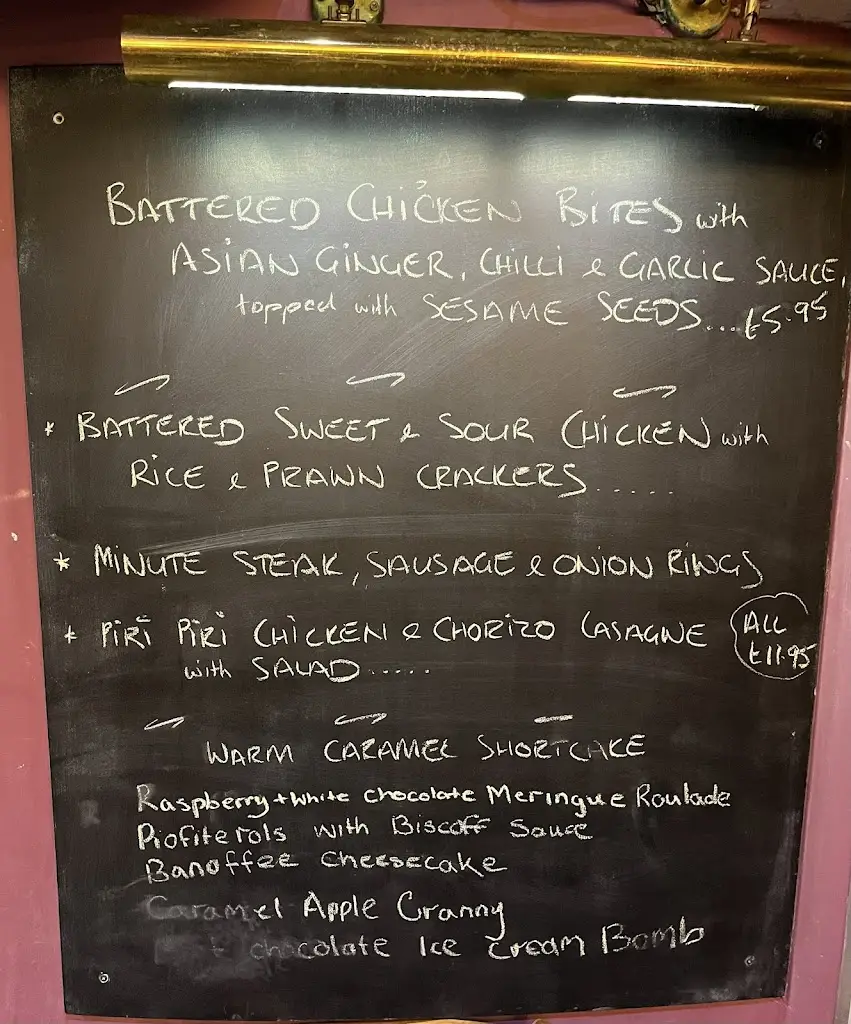 BATTERED CHICKEN BITES with
ASIAN GINGER, CHILLI & GARLIC SAUCE,
topped with SESAME SEEDS... £5.95
* BATTERED SWEET & SOUR CHICKEN with
RICE & PRAWN CRACKERS.....
* MINUTE STEAK, SAUSAGE & ONION RINGS
* PIRI PIRI CHICKEN & CHORIZO LASAGNE
with SALAD.....
ALL
£11.95
WARM CARAMEL SHORTCAKE
Raspberry + White Chocolate Meringue Roulade
Piofiterols with Biscoff Sauce
Banoffee Cheesecake
Caramel Apple Granny
chocolate Ice Cream Bomb